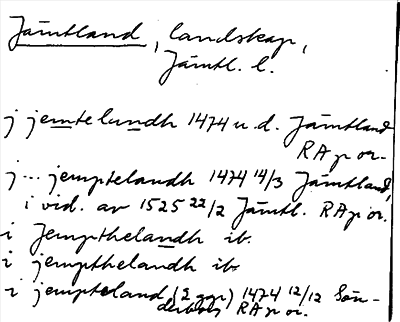 Jämtland, landskap,
Jämtl. l.
j jemtelundh 1474 u.d. Jämtland
RAp or.
j... jemptelandh 1474 14/3 Jämtland,
i vid. av 1525 22/2 Jämtl. RAp or.
i Jempthelandh ib.
i jempthelandh ib.
i jempteland (2 ggr) 1474 12/12 Sön-
derby RAp or.